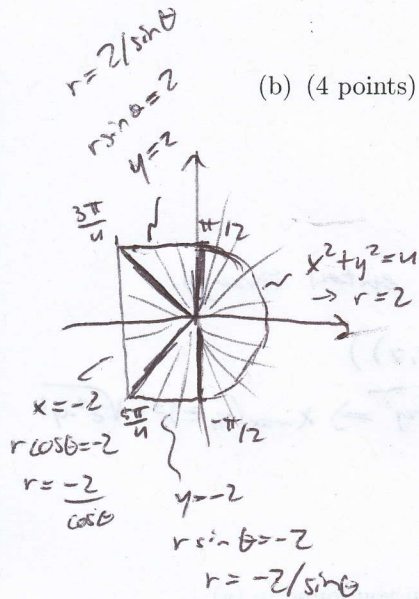 r = 2/sinθ
r sinθ = 2
y = 2
(b) (4 points)
3π/4
π/2
x² + y² = 4
→ r = 2
x = -2
r cosθ = -2
r = -2/cosθ
5π/4
-π/2
y = -2
r sinθ = -2
r = -2/sinθ